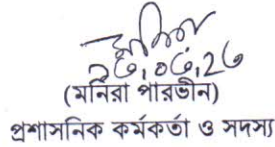 (মনিরা পারভীন)
প্রশাসনিক কর্মকর্তা ও সদস্য